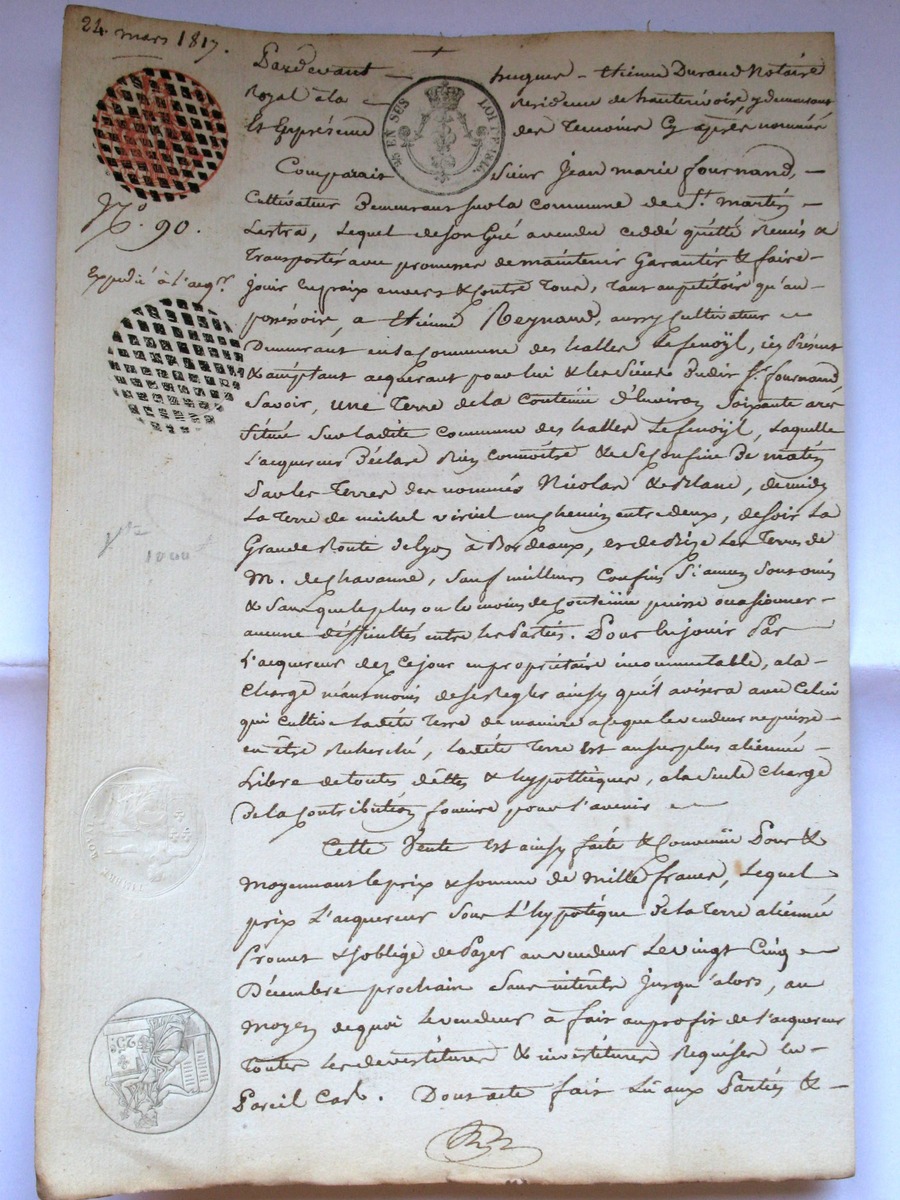 24. mars 1817.
Pardevant hugues - Etienne Durand Notaire
Royal à la Residence de hauterivoire y demeurant
Et En présence des Temoins Cy après nommés
N.º 90.
Comparait Sieur Jean marie fournand, -
Cultivateur Demeurant sur la commune de St. martin -
Lestra, Lequel de son Gré a vendu ceddé quitté Remis &
Expedié à l'acqr.
Transportés avec promesse de maintenir Garantir & faire -
jouir En paix envers & contre Tous, tant au petitoire qu'au -
possessoire, a Etienne Reynaud, aussy Cultivateur
Demeurant en la Commune des halles Le fenoÿl, ici Présent
& acceptant acquerant pour lui & les Siens Dudit Sr. fournand
Savoir, une Terre de la Contenüe d'Environ Soixante ares
Située Sur ladite Commune des halles Le fenoÿl, Laquelle
L'acquereur Déclare Bien Connoitre & Se Confine De matin
Par les Terres des nommés Nicolas & Blanc, de midy
La Terre de michel viriel un chemin entre deux, de Soir La
Grande Route de Lyon à Bordeaux, et de Bize Les Terres de
1000
M. de chavanne, Sauf meilleurs Confins S'aucuns Sont omis
& Sans que le plus ou le moins de Contenüe puisse occasionner -
aucune difficultés entre les Parties. Pour En jouir Par
L'acquereur dez Ce jour en propriétaire incommutable, a la -
Charge néantmoins de se Regler ainsy qu'il avisera avec Celui
qui Cultive Ladite Terre de manière a ce que le vendeur ne puisse -
en être Recherché, Ladite Terre Est au Surplus aliennée -
Libre de toutes dettes & hypothèques, a la Seule Charge
De la Contribution fonciere pour l'avenir
Cette Vente Est ainsy faite & Convenüe Pour &
moyennant le prix & Somme de mille francs, Lequel
prix L'acquereur Sous L'hypotèque De la Terre aliennée
Promet & S'oblige de Payer au vendeur Le vingt Cinq
Décembre prochain Sans intérêts Jusqu'alors, au
moyen de quoi Le vendeur à fait au profit de l'acquereur
Toutes Les devestitures & investitures Requises En -
Pareil Cas. Dont acte fait Lû aux Parties & -